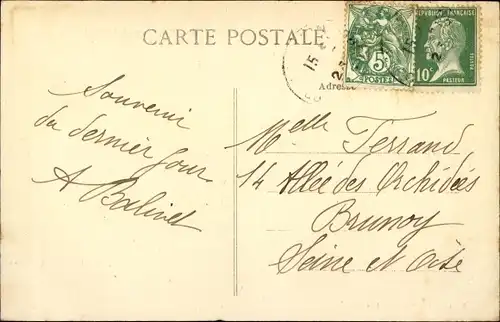 CARTE POSTALE
Souvenir
du dernier jour
A
Adresse
RÉPUBLIQUE FRANÇAISE
5c
POSTES
10c
PASTEUR
15
Melle Ferrand
14 Allée des Orchidées
Brunoy
Seine et Oise